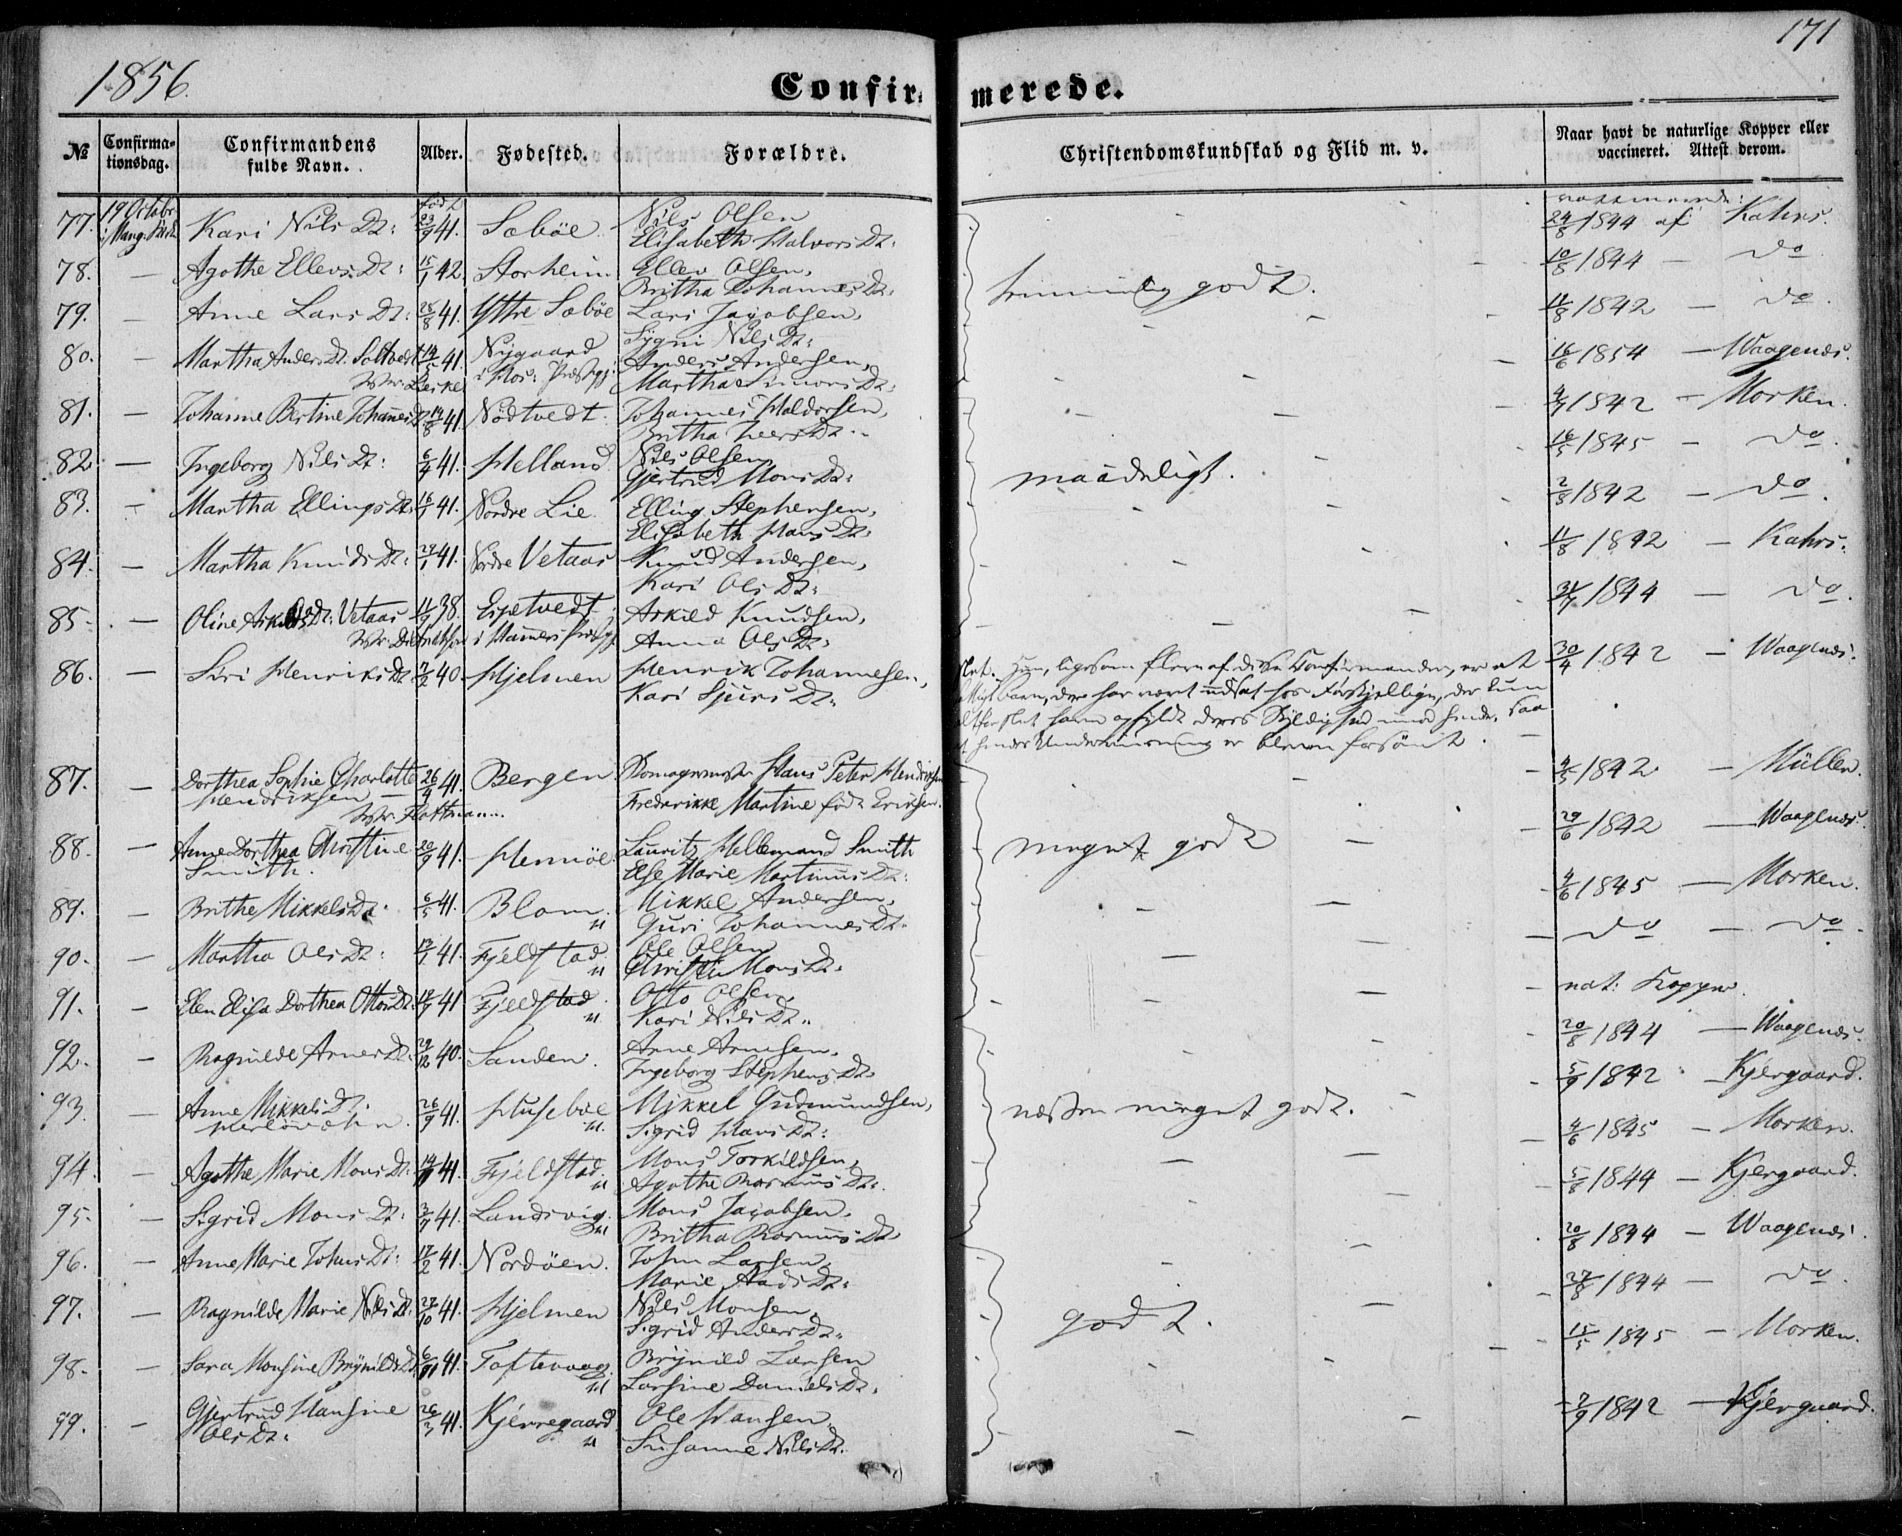 171
1856.
Confirmerede.
№ Confirmationsdag. Confirmandens fulde Navn. Alder. Fødested. Forældre. Christendomskundskab og Flid m. v. Naar havt de naturlige Kopper eller vaccineret. Attest derom.
77. 19 Octobr Kari Nils Dt: født 23/9 41. Sæbøe. Nils Olsen Elisabeth Halvors Dt: 24/8 1844 af Kahrs.
78. — Agathe Ellevs Dt: 15/1 42. Storheim Ellev Olsen, Britha Johannes Dt: temmelig godt. 10/8 1844 — do
79. — Anne Lars Dt: 25/8 41. Yttre Sæbøe Lars Jacobsen, Sygni Nils Dt: — 11/8 1842 — do.
80. — Martha Anders Dt: 41. Nygaard i Hos: Præstgj: Anders Andersen, Martha Simons Dt: — 16/6 1854 — Waagenes.
81. — Johanne Bertine Johannes Dt 19/8 41. Nødtvedt. Johannes Haldorsen, Britha Ivers Dt: — 1842 — Morken.
82 — Ingeborg Nils Dt: 6/4 41. Helland Nils Olsen Gjertrud Mons Dt: maadeligt. 16/5 1845 — do.
83. — Martha Ellings Dt: 16/1 41. Nordre Lie Elling Stephensen, Elisabeth Hans Dt: — 2/8 1842 — do.
84. — Martha Knuds Dt: 29/1 41. Nordre Vetaas Knud Andersen, Kari Ols Dt: — 11/8 1842 — Kahrs.
85. — Oline Askilds Dt: Vetaas 11/9 38. Espetvedt i Hammers Præstgj. Askild Knudsen, Anna Ols Dt: — 1844 — do.
86. — Siri Henriks Dt: 7/2 40. Hjelmen Henrik Johannesen, Kari Sjurs Dt: 30/4 1842 — Waagenes.
Slet. Hun, ligesom flere af disse Confirmander, er et
Barn, der har vært udsat hos Forskjellige, der kun
altfor slet have opfyldt deres Skyldighed imod hende, saa
at hendes Underviisning er bleven forsømt.
87. — Dorthea Sophie Charlotte Hendriksen 26/4 41. Bergen Hans Peter Hendriksen Frederikke Martine født Eriksen. — 4/5 1842 — Müller.
88. — Anne Dorthea Christine Smith. 20/9 41. Hennøe. Lauritz Hellemand Smith Else Marie Martinus Dt: meget godt — 29/6 1842 — Waagenes.
89. — Brithe Mikkels Dt: 6/5 41. Blom. Mikkel Andersen, Guri Johannes Dt: — 4/6 1845 — Morken.
90. — Martha Ols Dt: 13/1 41. Fjeldstad Ole Olsen Christi Mons Dt: — do — do.
91. — Elen Elisa Dorthea Ottos Dt: 41 Fjeldstad. Otto Olsen, Kari Nils Dt: — nat: Kopper.
92. — Ragnilde Arnes Dt: 29/12 40. Sanden. Arne Arnesen, Ingeborg Stephens Dt: — 20/8 1844 — Waagenes.
93. — Anne Mikkels Dt: 26/9 41. Husebøe Mikkel Gudmundsen, Sigrid Hans Dt: næsten meget godt. 5/9 1842 — Kjergaard.
94. — Agathe Marie Mons Dt: 41. Fjeldstad. Mons Torkildsen, Agathe Rasmus Dt: — 4/6 1845 — Morken.
95. — Sigrid Mons Dt: 41. Landsvig. Mons Jacobsen, Britha Rasmus Dt — 5/8 1844 — Kjergaard.
96. — Anne Marie Johns Dt: 17/2 41. Nordøen. John Larsen, Marie Aads Dt: — 20/8 1844 — Waagenes.
97. — Ragnilde Marie Nils Dt: 27/10 41. Hjelmen Nils Monsen, Sigrid Anders Dt: godt. 27/8 1844 — do.
98. — Sara Monsine Brynilds Dt: 41. Toftevaag. Brynild Larsen Larsine Daniels Dt: — 15/5 1845 — Morken.
99. — Gjertrud Hansine Ols Dt: 26/3 41. Kjerregaard Ole Hansen, Susanne Nils Dt: — 7/9 1842 — Kjergaard.